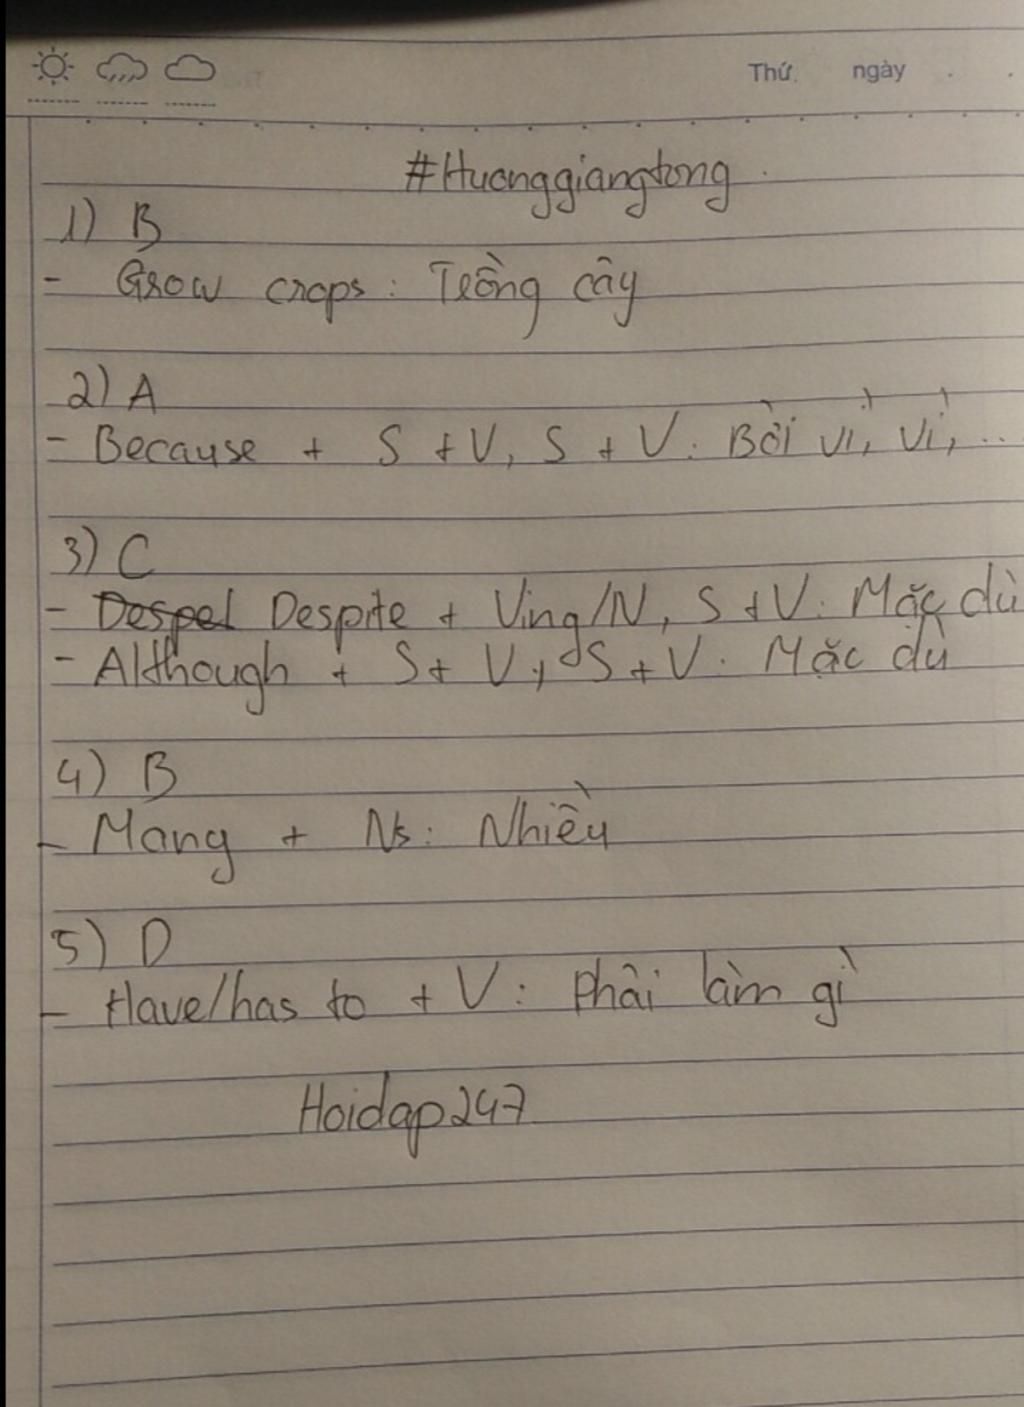 Thứ ngày
#Huonggiangtong
1) B
- Grow crops: Trồng cây
2) A
- Because + S + V, S + V: Bởi vì, vì, ...
3) C
- Despite + Ving/N, S + V: Mặc dù
- Although + S + V, S + V: Mặc dù
4) B
- Many + Ns: Nhiều
5) D
- Have/has to + V: phải làm gì
Hoidap247